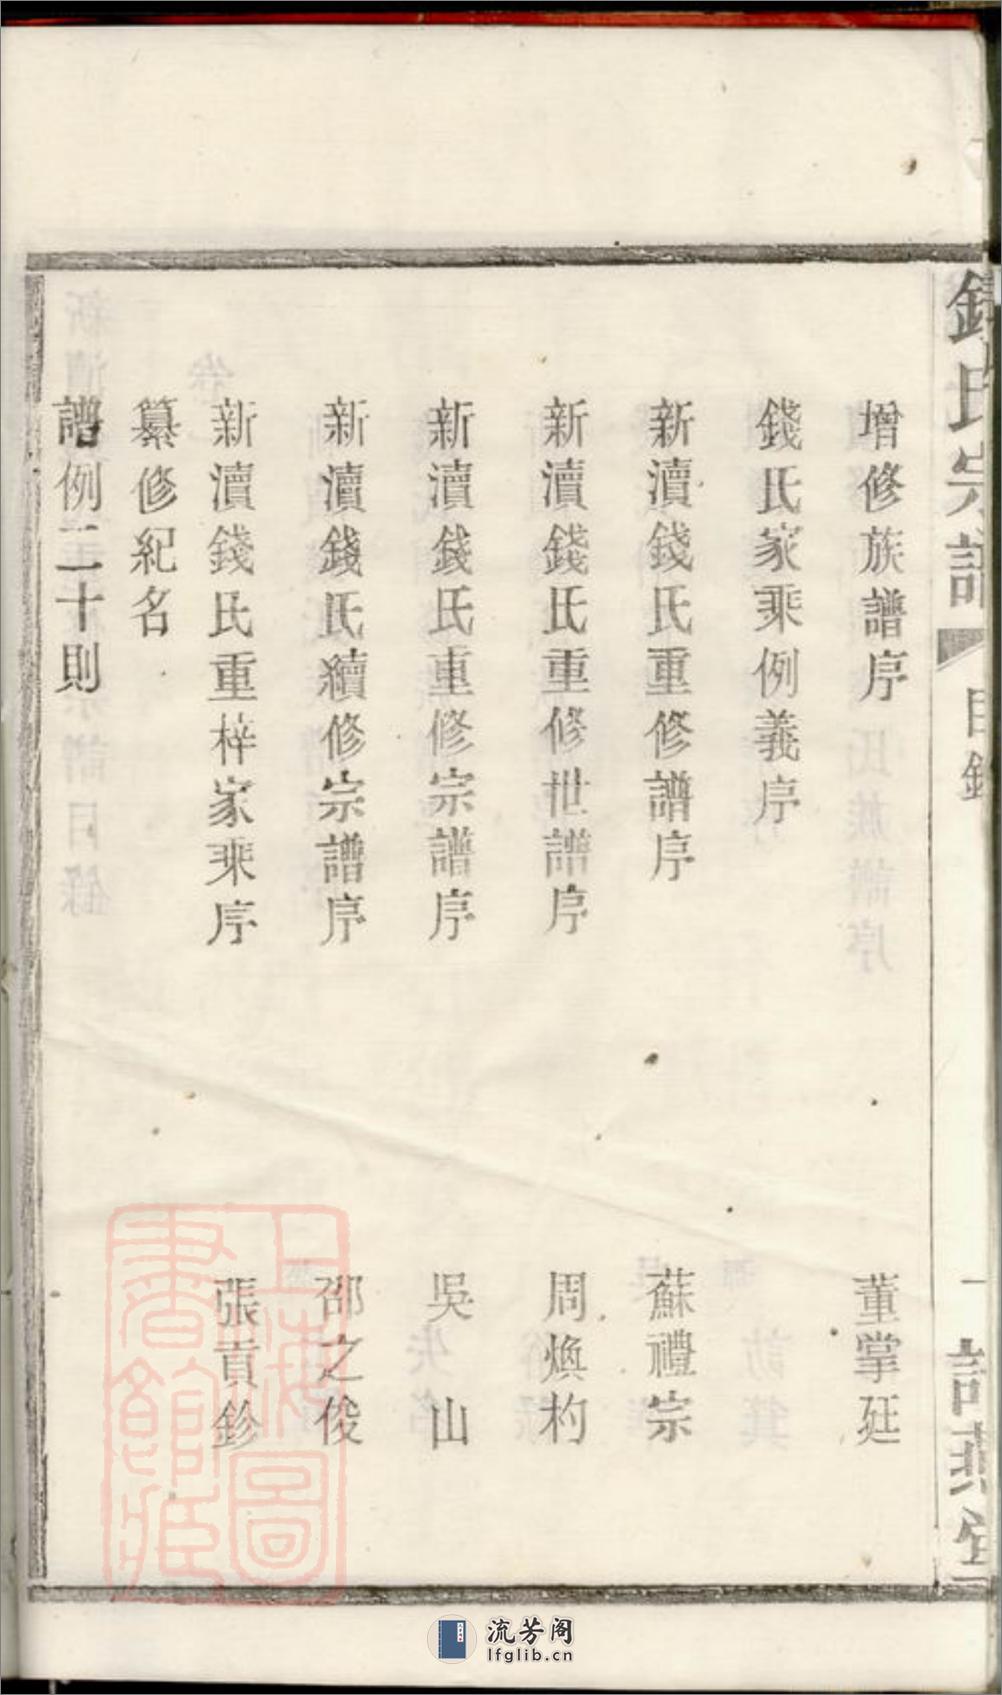 錢氏宗譜 目錄 一
增修族譜序 董掌廷
錢氏家乘例義序
新瀆錢氏重修譜序 蘇禮宗
新瀆錢氏重修世譜序 周煥杓
新瀆錢氏重修宗譜序 吳山
新瀆錢氏續修宗譜序 邵之俊
新瀆錢氏重梓家乘序 張貢鉁
纂修紀名
譜例二十則
上海圖書館藏
流芳阁
lfglib.cn